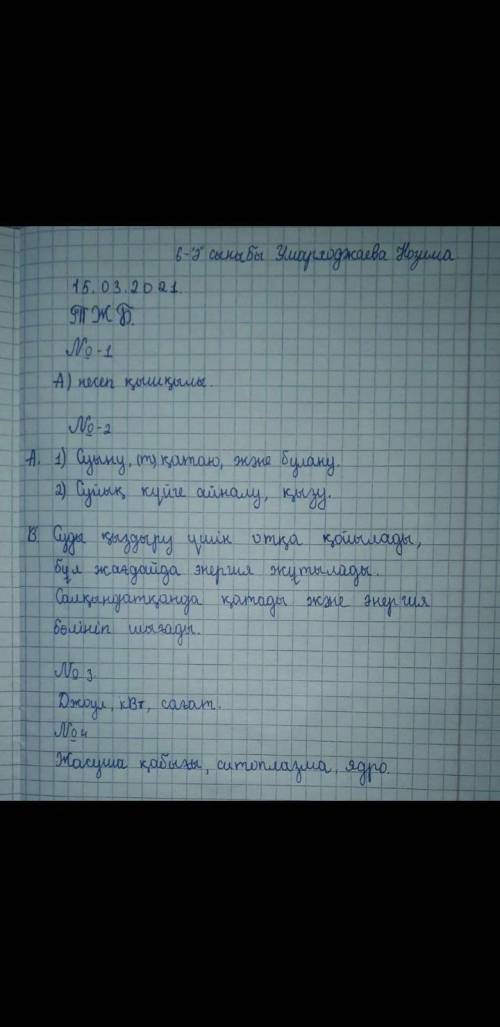 6-"Ә" сыныбы Умарходжаева Нозима
15.03.2021.
ТЖБ.
№-1
А) несеп қышқылы.
№-2
А. 1) Суыну, қатаю, және булану.
2) Сұйық күйге айналу, қызу.
В. Суды қыздыру үшін отқа қойылады,
бұл жағдайда энергия жұтылады.
Салқындатқанда қатады және энергия
бөлініп шығады.
№ 3.
Джоул, кВт, сағат.
№ 4
Жасуша қабығы, ситоплазма, ядро.